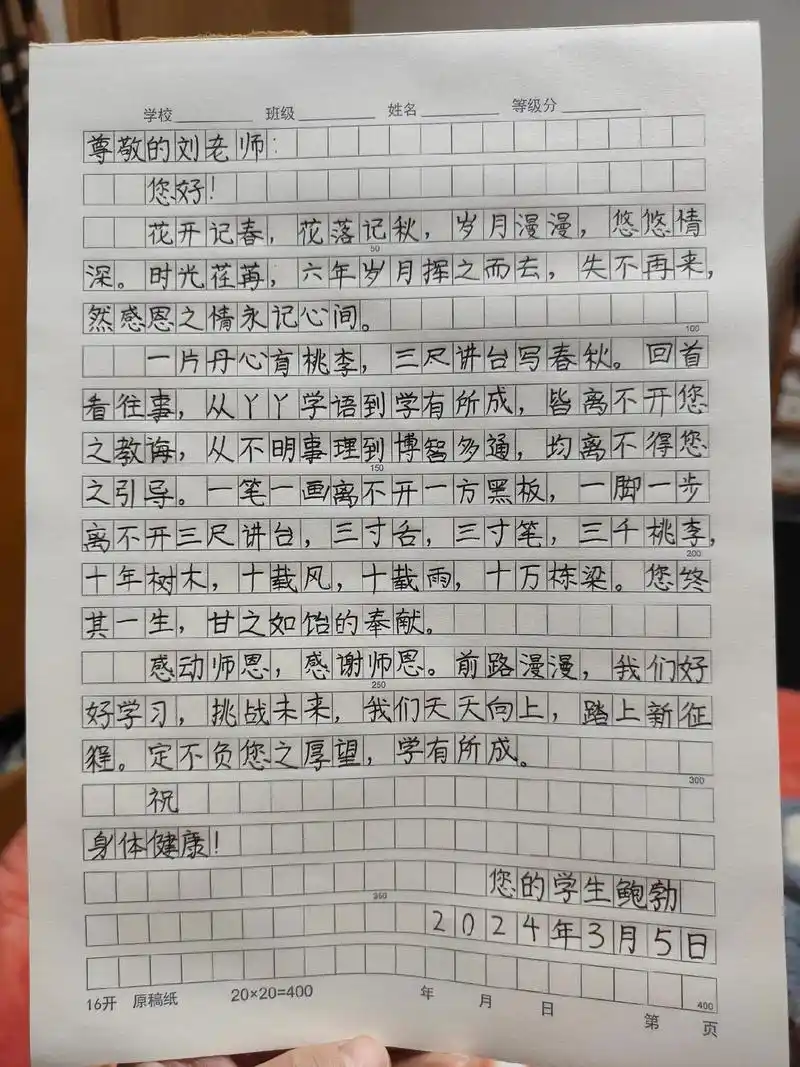 学校 班级 姓名 等级分
尊敬的刘老师：
您好！
花开记春，花落记秋，岁月漫漫，悠悠情
50
深。时光荏苒，六年岁月挥之而去，失不再来，
然感恩之情永记心间。
100
一片丹心育桃李，三尺讲台写春秋。回首
看往事，从丫丫学语到学有所成，皆离不开您
之教诲，从不明事理到博智多通，均离不得您
150
之引导。一笔一画离不开一方黑板，一脚一步
离不开三尺讲台，三寸舌，三寸笔，三千桃李，
200
十年树木，十载风，十载雨，十万栋梁。您终
其一生，甘之如饴的奉献。
感动师恩，感谢师恩。前路漫漫，我们好
250
好学习，挑战未来，我们天天向上，踏上新征
程。定不负您之厚望，学有所成。
300
祝
身体健康！
您的学生鲍勃
350
2024年3月5日
400
16开 原稿纸 20×20=400 年 月 日 第 页